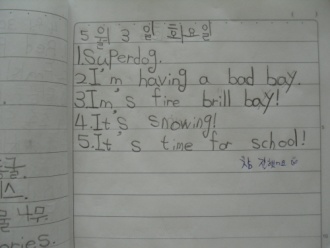 5월 3일 화요일
1.Superdog.
2.I'm having a bad bay.
3.Im's fine brill bay!
4.It's snowing!
5.It's time for school!
참 잘했어요
나무
ories.